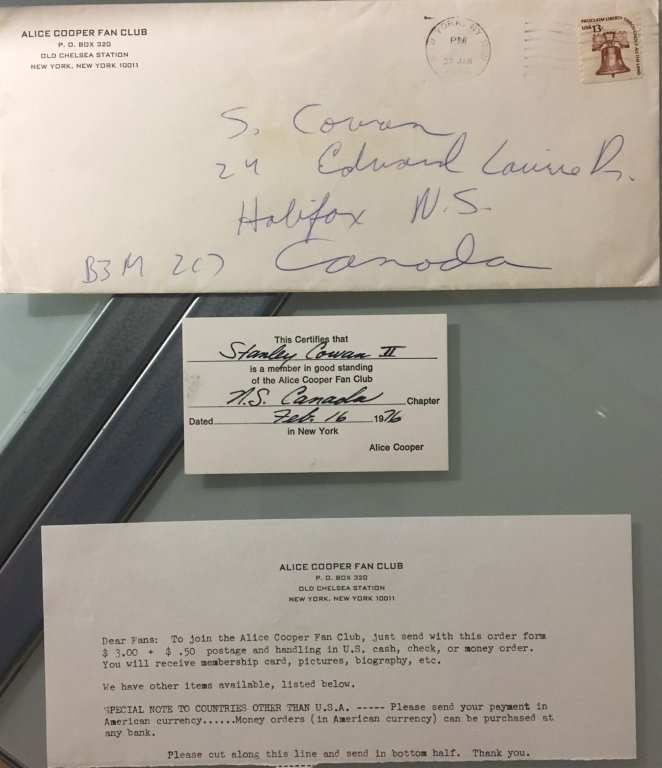 ALICE COOPER FAN CLUB
P. O. BOX 320
OLD CHELSEA STATION
NEW YORK, NEW YORK 10011
YORK, NY
PM
27 JAN
PROCLAIM LIBERTY THROUGHOUT ALL THE LAND
USA 13c
S. Cowan
24 Edward Laurie Dr.
Halifax N.S.
B3M 2C7 Canada
This Certifies that
Stanley Cowan II
is a member in good standing
of the Alice Cooper Fan Club
N.S. Canada Chapter
Dated Feb. 16 1976
in New York
Alice Cooper
ALICE COOPER FAN CLUB
P. O. BOX 320
OLD CHELSEA STATION
NEW YORK, NEW YORK 10011
Dear Fans: To join the Alice Cooper Fan Club, just send with this order form
$ 3.00 + $ .50 postage and handling in U.S. cash, check, or money order.
You will receive membership card, pictures, biography, etc.
We have other items available, listed below.
SPECIAL NOTE TO COUNTRIES OTHER THAN U.S.A. ----- Please send your payment in
American currency......Money orders (in American currency) can be purchased at
any bank.
Please cut along this line and send in bottom half. Thank you.